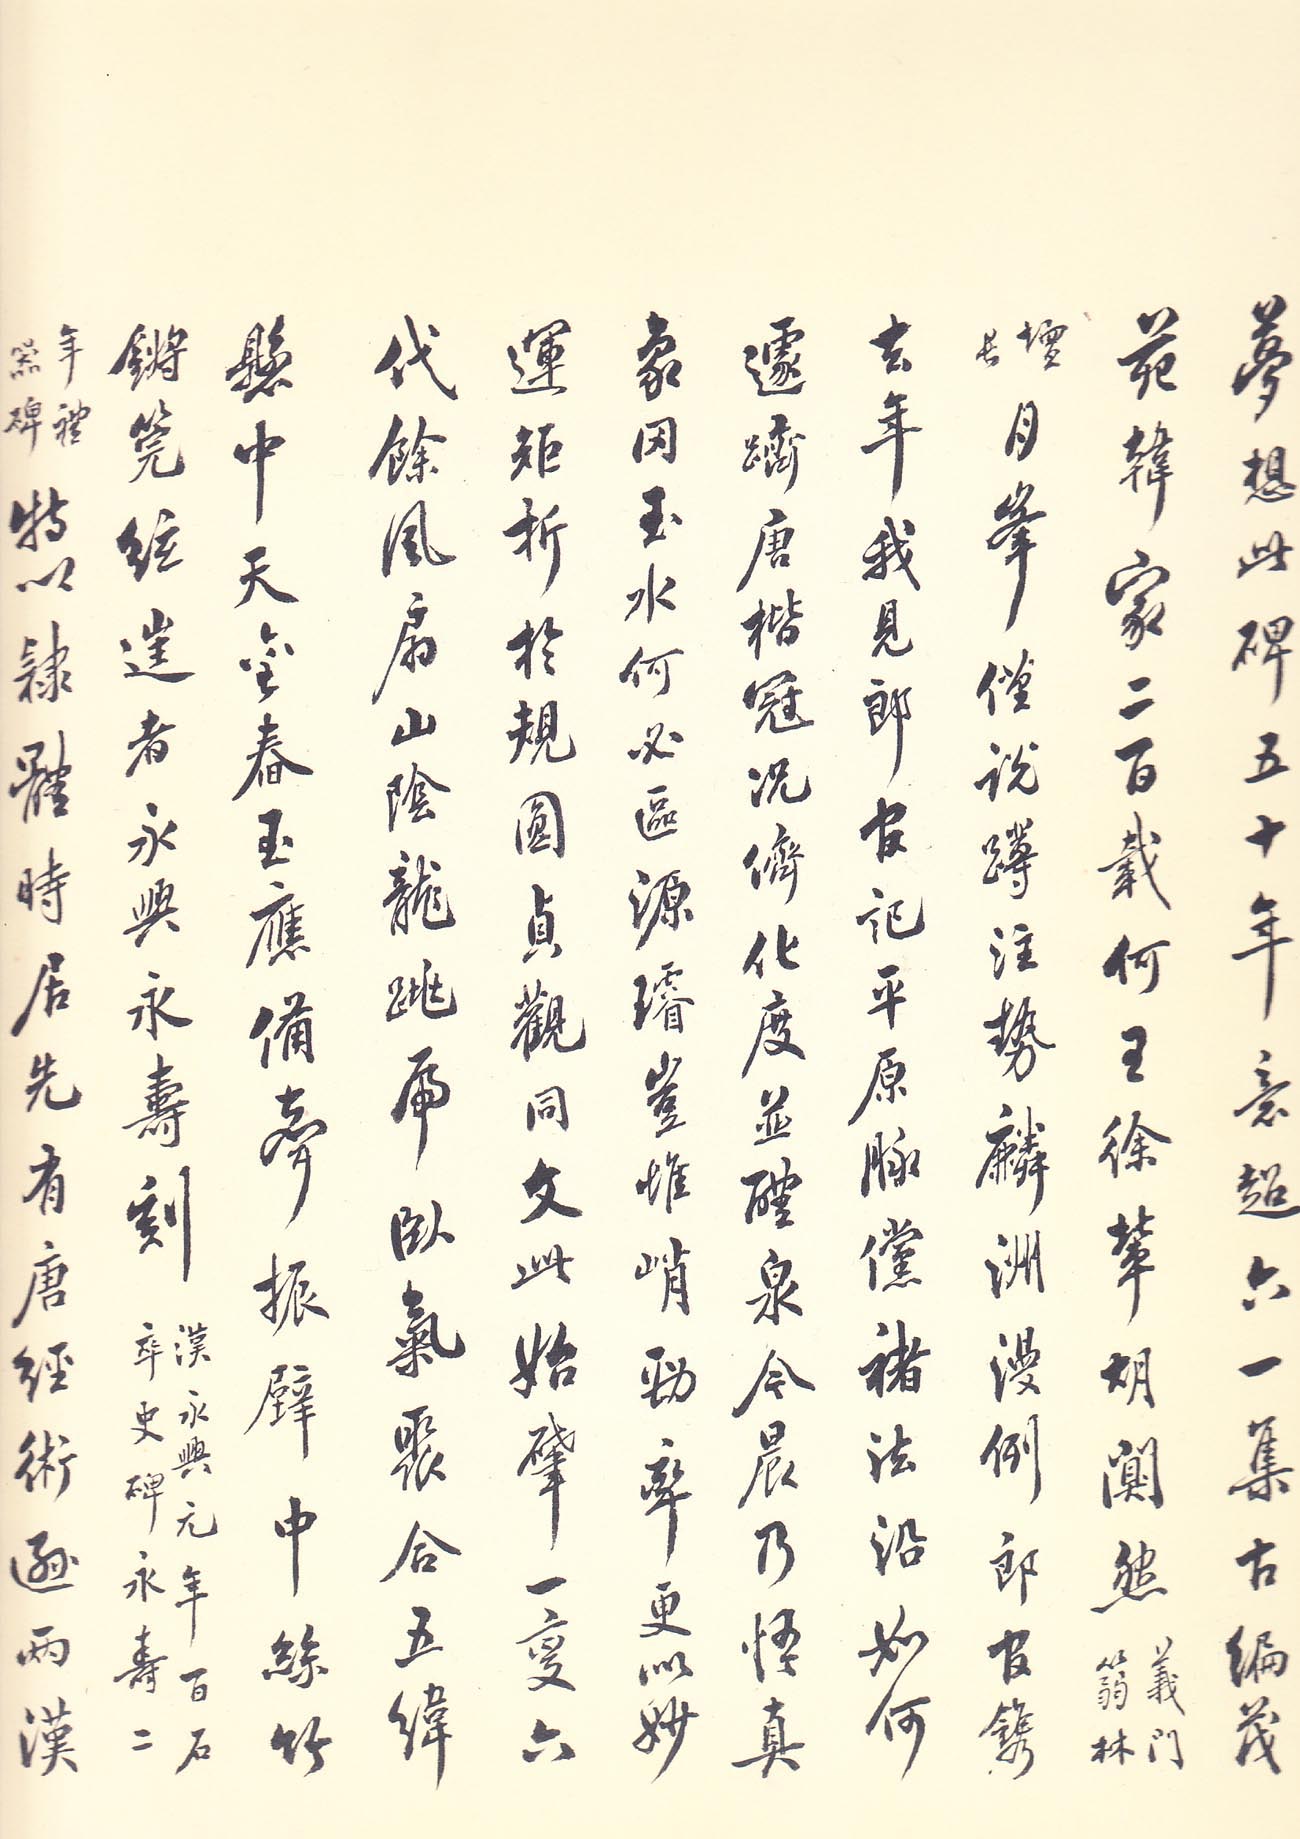 夢想此碑五十年意超六一集古編茂
苑韓家二百載何王徐輩胡闃然義門篛林
壇長月峯僧說蹲注勢麟洲漫例郎官鐫
去年我見郎官記平原脉儻褚法沿如何
遽躋唐楷冠況儕化度並醴泉今晨乃悟真
象因玉水何必區源璿豈惟峭勁率更似妙
運矩折於規圓貞觀同文此始肇一變六
代餘風扇山陰龍跳虎臥氣聚合五緯
懸中天金舂玉應備奔振璧中絲竹
鏘筦絃逞者永興永壽刻漢永興元年百石卒史碑永壽二
年禮器碑特以隸體時居先有唐經術遜兩漢